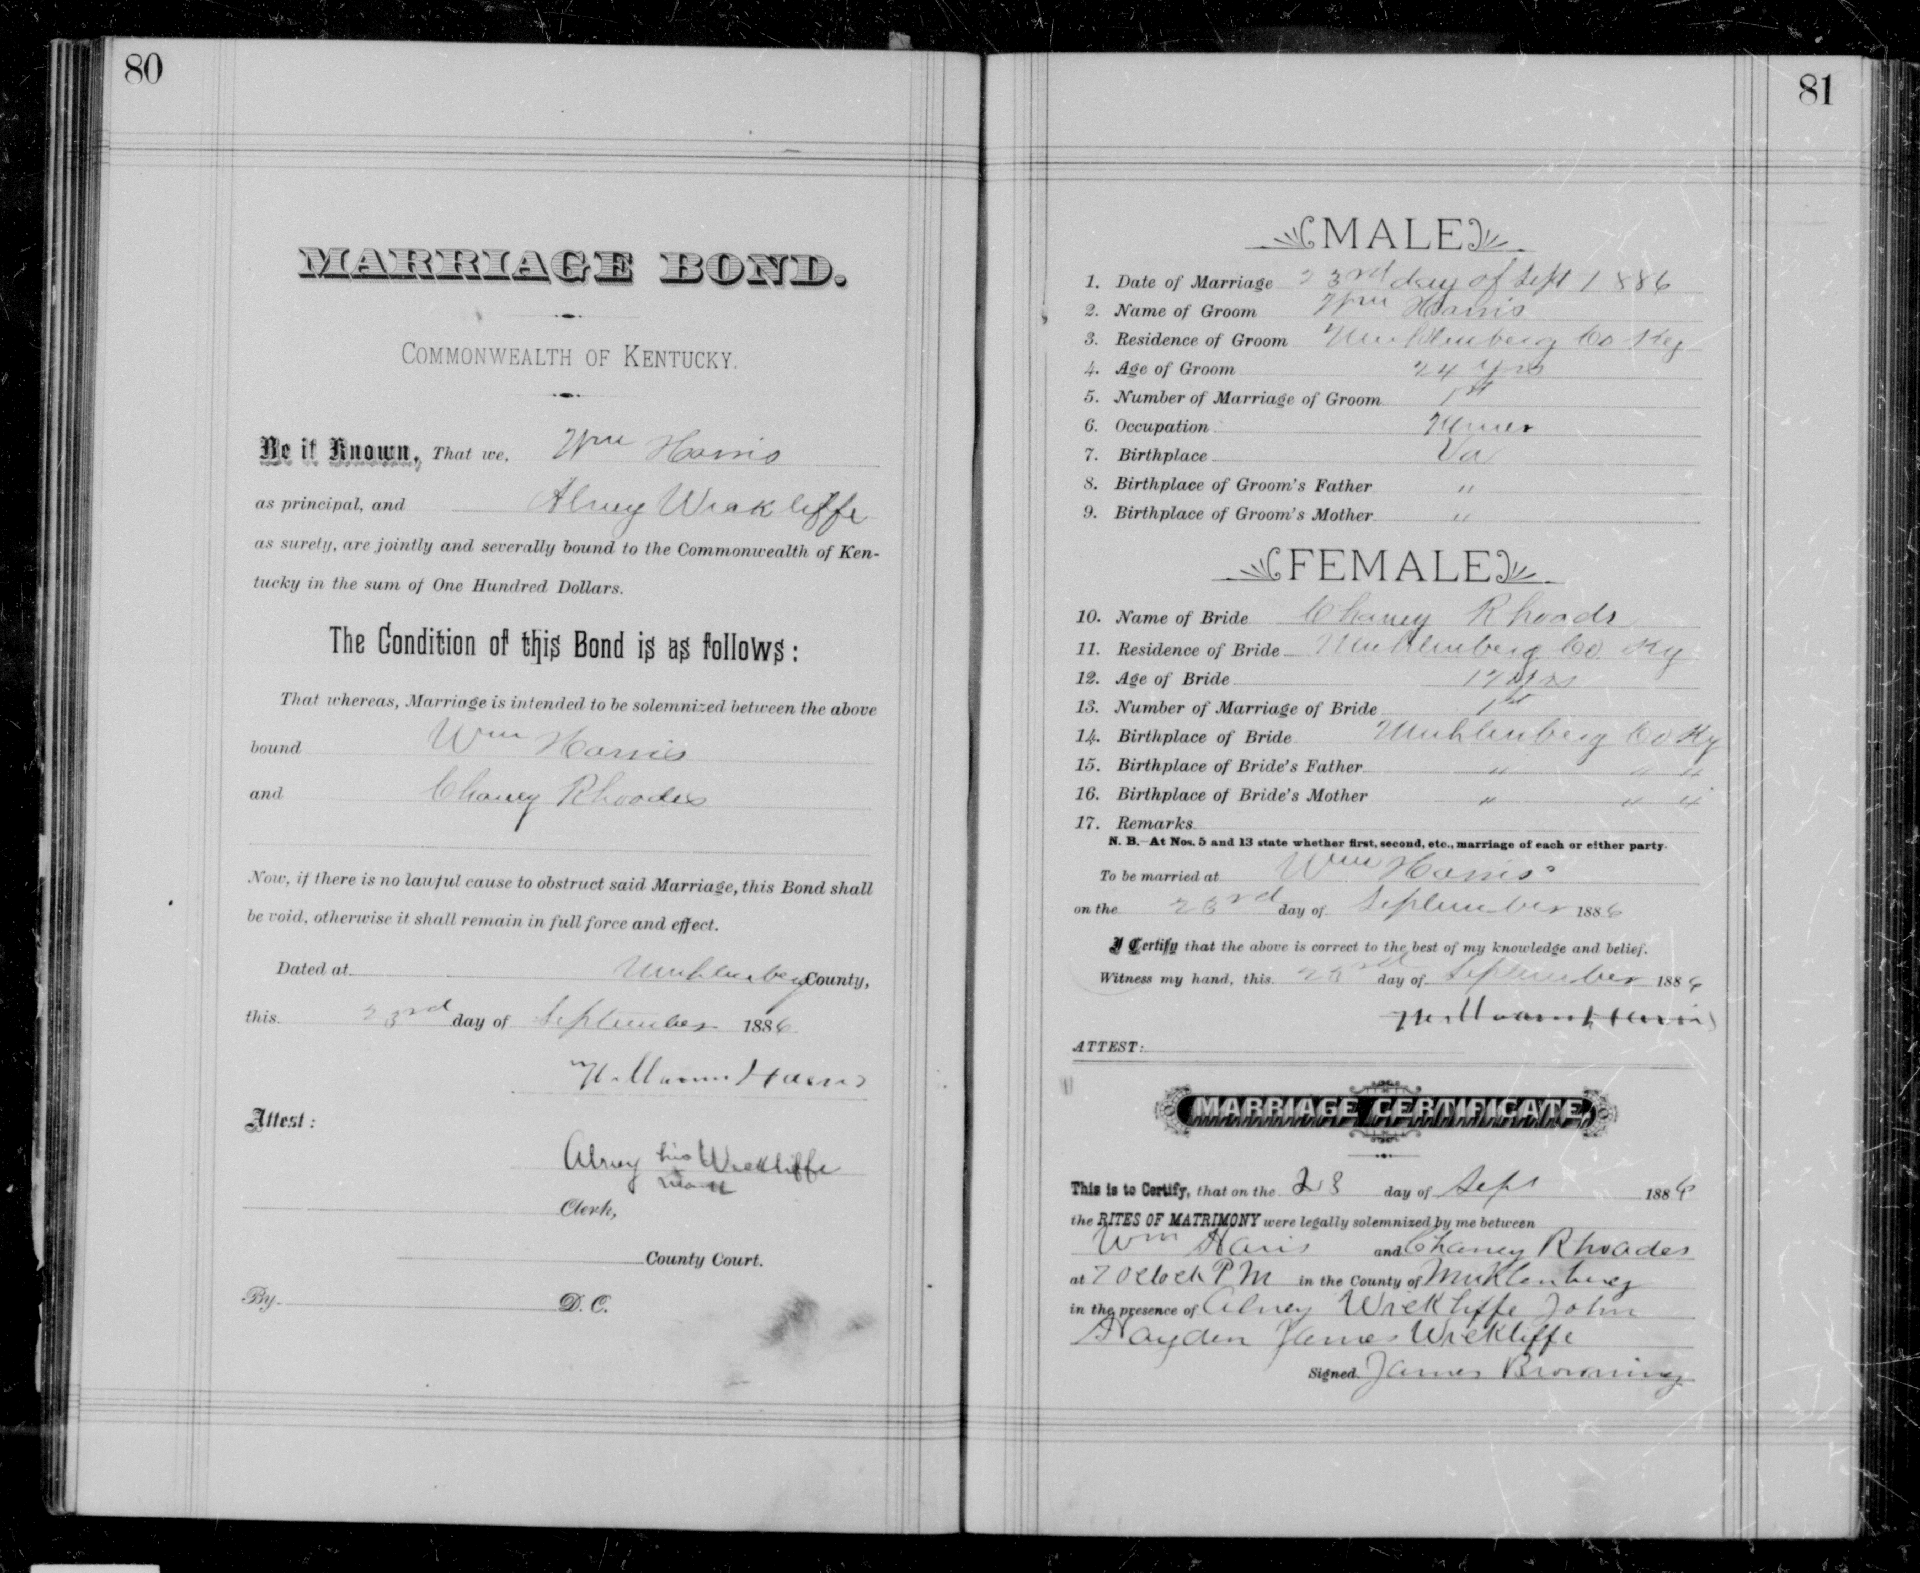 80
MARRIAGE BOND.
COMMONWEALTH OF KENTUCKY.
Be it Known, That we, Wm Harris
as principal, and Alney Wickliffe
as surety, are jointly and severally bound to the Commonwealth of Ken-
tucky in the sum of One Hundred Dollars.
The Condition of this Bond is as follows:
That whereas, Marriage is intended to be solemnized between the above
bound Wm Harris
and Chaney Rhoades
Now, if there is no lawful cause to obstruct said Marriage, this Bond shall
be void, otherwise it shall remain in full force and effect.
Dated at Muhlenberg County,
this 23rd day of September 1886
William Harris
Attest:
Alney his Wickliffe
mark
Clerk,
County Court.
By D. C.
81
MALE
1. Date of Marriage 23rd day of Sept 1886
2. Name of Groom Wm Harris
3. Residence of Groom Muhlenberg Co Ky
4. Age of Groom 24 yrs
5. Number of Marriage of Groom 1st
6. Occupation Miner
7. Birthplace Va
8. Birthplace of Groom's Father "
9. Birthplace of Groom's Mother "
FEMALE
10. Name of Bride Chaney Rhoads
11. Residence of Bride Muhlenberg Co. Ky
12. Age of Bride 17 yrs
13. Number of Marriage of Bride 1st
14. Birthplace of Bride Muhlenberg Co Ky
15. Birthplace of Bride's Father " " "
16. Birthplace of Bride's Mother " " "
17. Remarks
N. B.—At Nos. 5 and 13 state whether first, second, etc., marriage of each or either party.
To be married at Wm Harris'
on the 23rd day of September 1886
I Certify that the above is correct to the best of my knowledge and belief.
Witness my hand, this 23rd day of September 1886
William Harris
ATTEST:
MARRIAGE CERTIFICATE,
This is to Certify, that on the 23 day of Sept 1886
the RITES OF MATRIMONY were legally solemnized by me between
Wm Haris and Chaney Rhoades
at 7 oclock PM in the County of Muklenberg
in the presence of Alney Wickliffe John
Hayden James Wickliffe
Signed James Browning